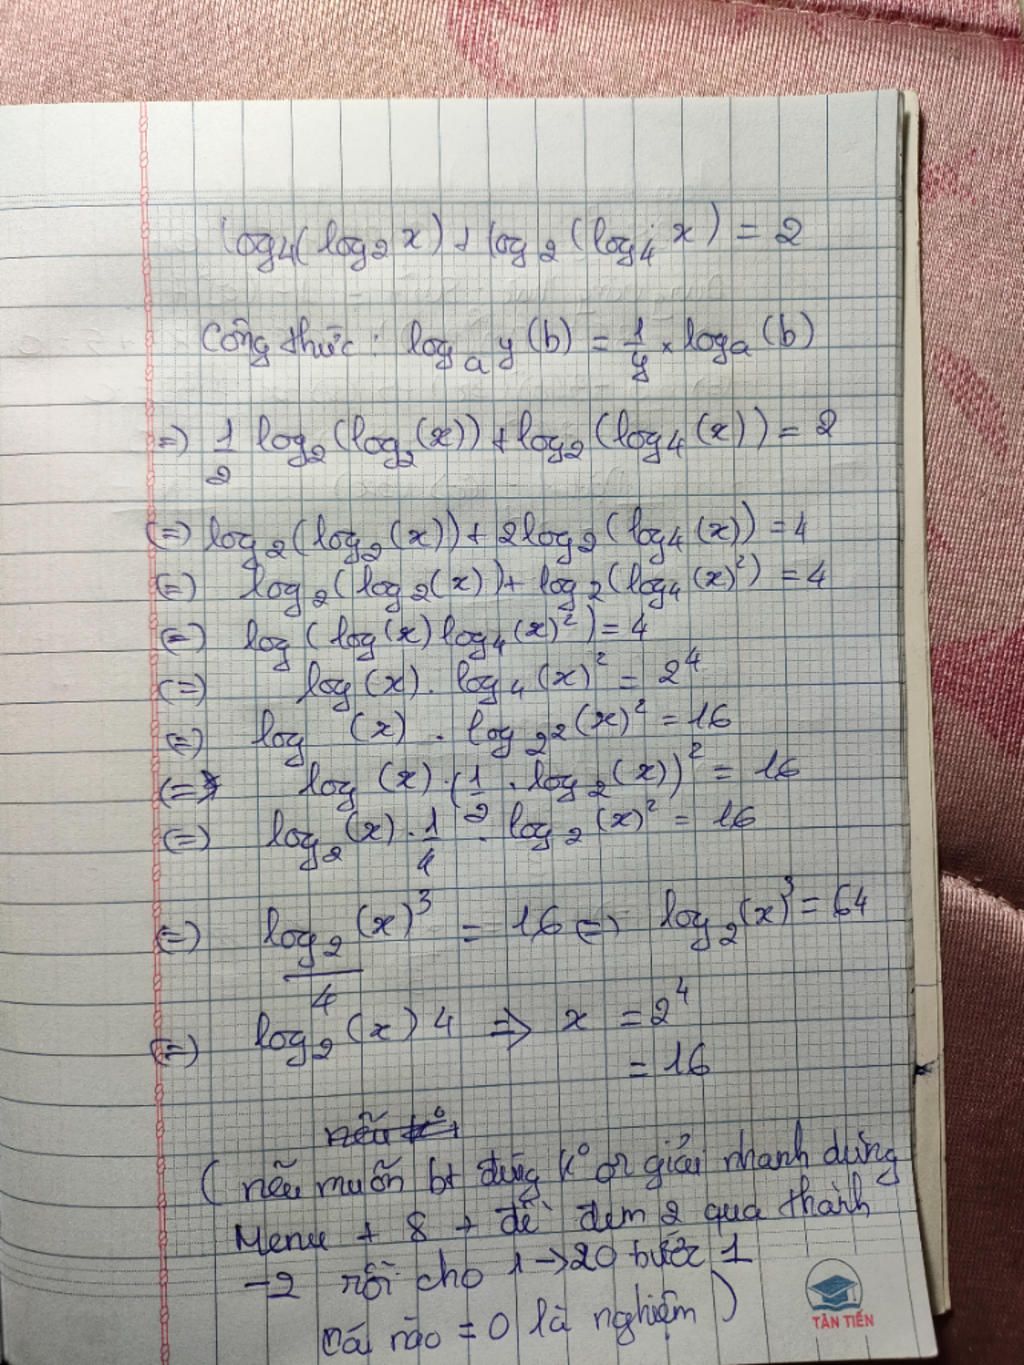 log₄(log₂ x) + log₂ (log₄ x) = 2
Công thức: logₐ y (b) = 1/y × logₐ (b)
=) 1/2 log₂(log₂(x)) + log₂(log₄(x)) = 2
(=) log₂(log₂(x)) + 2log₂(log₄(x)) = 4
(=) log₂(log₂(x)) + log₂(log₄(x)²) = 4
(=) log(log(x) log₄(x)²) = 4
(=) log(x) . log₄(x)² = 2⁴
(=) log (x) . log₂²(x)² = 16
(=) log(x) . (1/2 . log₂(x))² = 16
(=) log₂(x) . 1/4 . log₂(x)² = 16
(=) log₂(x)³/4 = 16 (=) log₂(x)³ = 64
(=) log₂(x) 4 => x = 2⁴
= 16
nếu k⁰
( nếu muốn bt đúng k⁰ or giải nhanh dùng
Menu + 8 + đề đem 2 qua thành
-2 rồi cho 1->20 bước 1
cái nào = 0 là nghiệm )
TÂN TIẾN